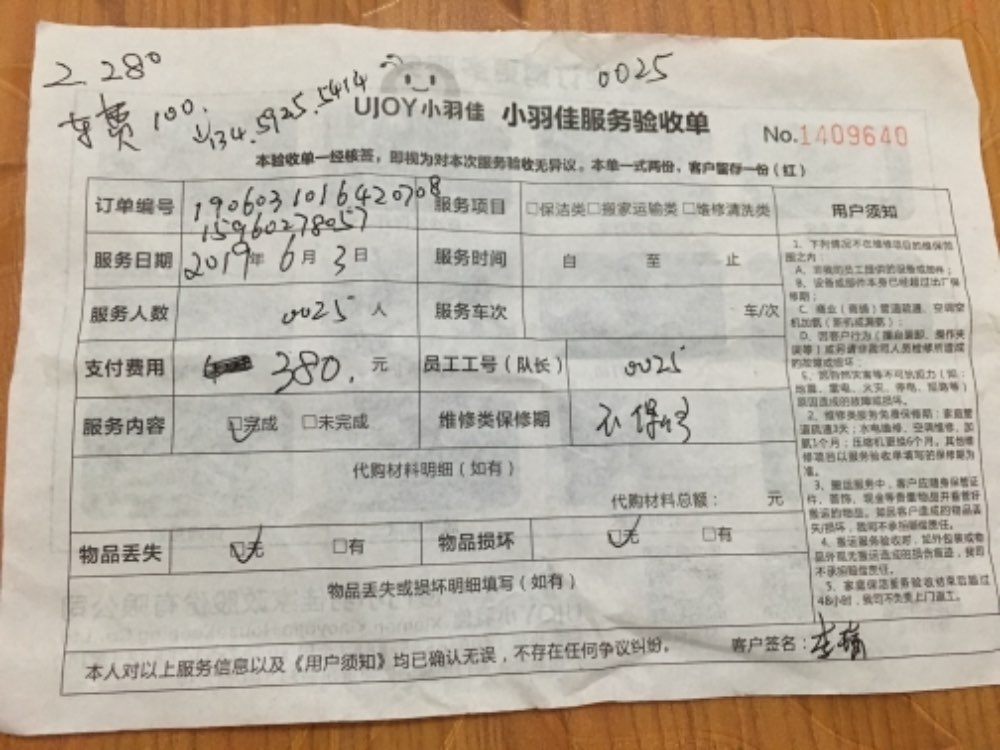 2.280
0025
车费 100.
134.5925.5414
UJOY小羽佳 小羽佳服务验收单
No.1409640
本验收单一经核签，即视为对本次服务验收无异议。本单一式两份，客户留存一份（红）
订单编号 1906031016420708 服务项目 □保洁类□搬家运输类□维修清洗类 用户须知
15960278057
服务日期 2019年 6月 3日 服务时间 自 至 止
服务人数 0025 人 服务车次 车/次
支付费用 380. 元 员工工号（队长） 0025
服务内容 □完成 □未完成 维修类保修期 不保修
代购材料明细（如有）
代购材料总额： 元
物品丢失 □无 □有 物品损坏 □无 □有
物品丢失或损坏明细填写（如有）
本人对以上服务信息以及《用户须知》均已确认无误，不存在任何争议纠纷。 客户签名：
1、下列情况不在维修项目的维保范
围之内：
A、非我司员工提供的设备或部件；
B、设备或部件本身已经超过出厂保
修期；
C、商业（商铺）管道疏通、空调空
机加氨（新机或漏氨）；
D、因客户行为（擅自装卸、操作失
误等）或另请非我司人员检修所造成
的故障或损坏；
地震、雷电、火灾、停电、短路等）
原因造成的故障或损坏。
2、维修类服务免息保修期：家庭管
道疏通3天；水电维修、空调维修、加
氨1个月；压缩机更换6个月。其他维
修项目以服务验收单填写的保修期为
准。
3、搬运服务中，客户应随身保管证
件、首饰、现金等贵重物品并看管好
搬运的物品。如因客户造成的物品丢
失/损坏，我司不承担赔偿责任。
4、搬运服务验收时，如外包装或物
品外观无搬运造成的损伤痕迹，我司
不承担赔偿责任。
5、家庭保洁服务验收结束后超过
48小时，我司不负责上门返工。